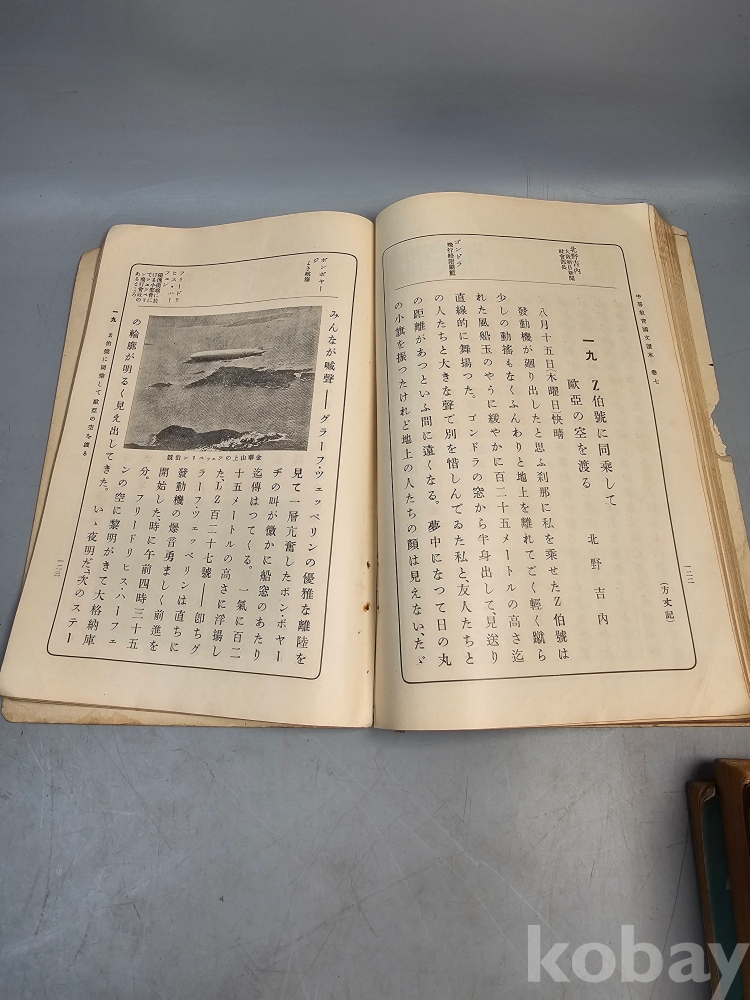 中等教育國文讀本 卷七
一二二
(方丈記)
一九 Z伯號に同乘して
歐亞の空を渡る
北野吉内
北野吉内
大阪朝日新聞
社會部長
ゴンドラ
飛行船附屬籠
八月十五日(木曜日)快晴
發動機が廻り出したと思ふ刹那に私を乘せたZ伯號は
少しの動搖もなくふんわりと地上を離れてごく輕く蹴ら
れた風船玉のやうに緩やかに百二十五メートルの高さ迄
直線的に舞揚つた。ゴンドラの窓から半身出して、見送り
の人たちと大きな聲で別を惜しんでゐた私と、友人たちと
の距離があつといふ間に遠くなる。夢中になつて日の丸
の小旗を振つたけれど地上の人たちの顏は見えない、たゞ
ボンボヤー
ジ
みんなが喊聲――グラーフ・ツェッペリンの優雅な離陸を
見て一層亢奮したボン・ボヤー
ヂの叫が微かに船窓のあたり
迄傳はつてくる。一氣に百二
十五メートルの高さに浮揚し
た、LZ百二十七號――卽ちグ
ラーフ・ツェッペリンは直ちに
發動機の爆音勇ましく前進を
開始した、時に午前四時三十五
分。フリードリヒス・ハーフェ
ンの空に黎明がきて大格納庫
の輪廓が明るく見え出してきた。いゝ夜明だ、次のステー
金華山上のツェッペリン伯號
フリードリ
ヒス・ハー
フェン
一九 Z伯號に同乘して歐亞の空を渡る
一二三
kobay